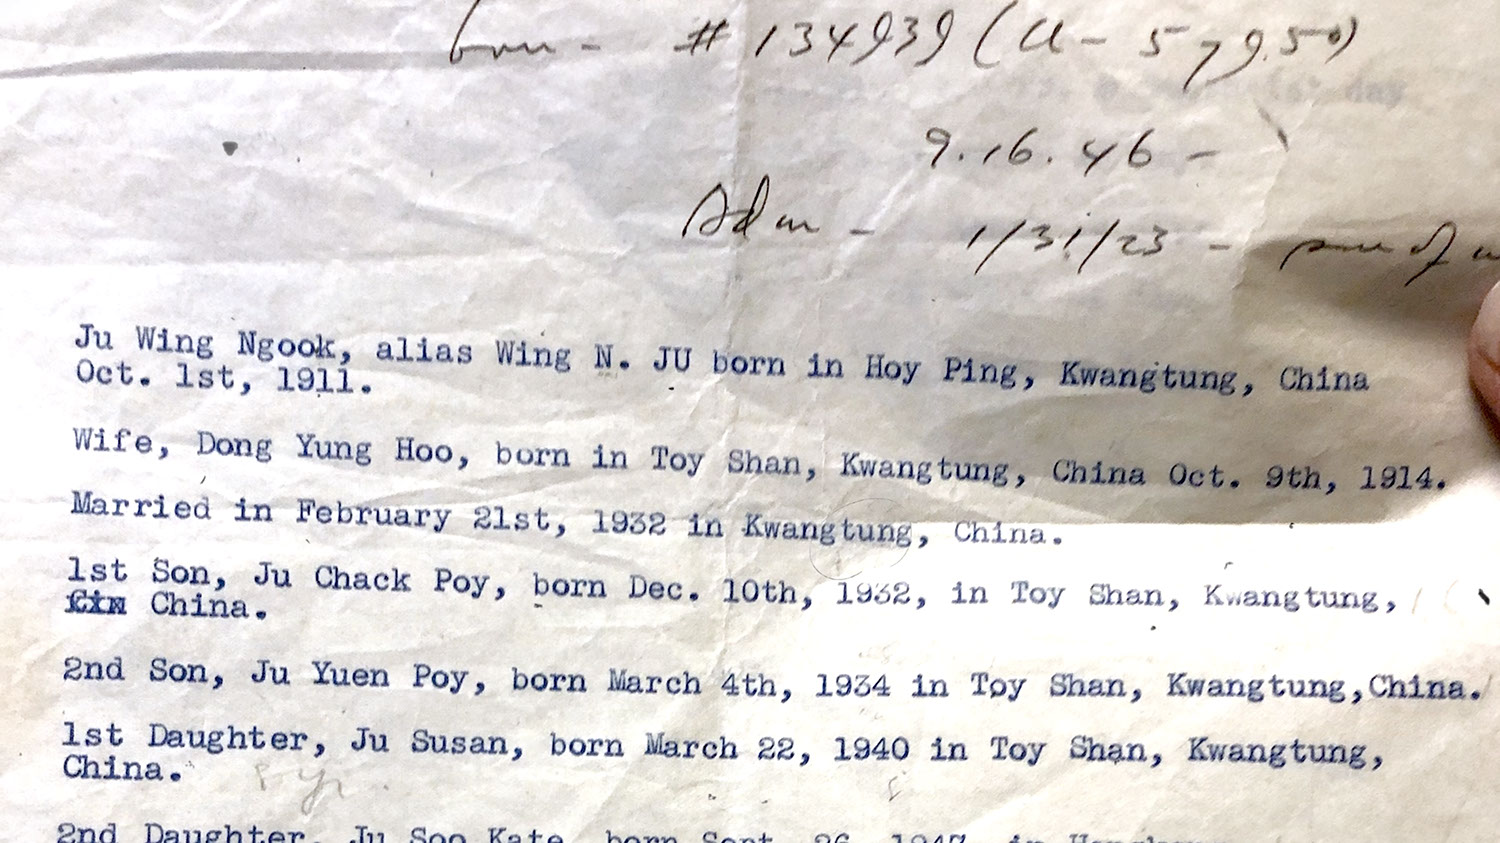 # 134939 (A- 579.50)
9.16.46 -
Adm - 1/31/23 -
Ju Wing Ngook, alias Wing N. JU born in Hoy Ping, Kwangtung, China
Oct. 1st, 1911.
Wife, Dong Yung Hoo, born in Toy Shan, Kwangtung, China Oct. 9th, 1914.
Married in February 21st, 1932 in Kwangtung, China.
1st Son, Ju Chack Poy, born Dec. 10th, 1932, in Toy Shan, Kwangtung,
China.
2nd Son, Ju Yuen Poy, born March 4th, 1934 in Toy Shan, Kwangtung,China.
1st Daughter, Ju Susan, born March 22, 1940 in Toy Shan, Kwangtung,
China.
2nd Daughter, Ju Soo Kate, born Sept. 26, 1947, in